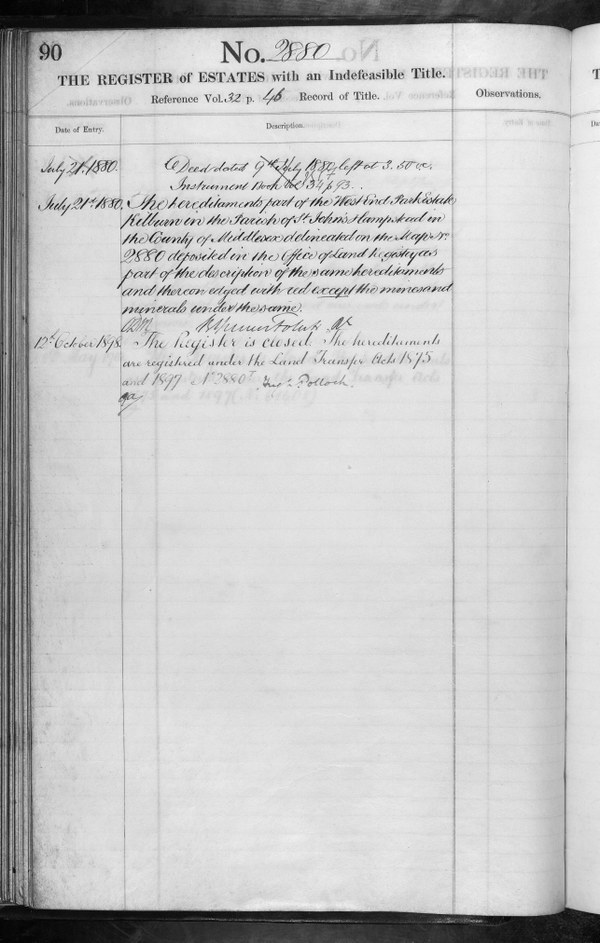 90
No. 2880
THE REGISTER of ESTATES with an Indefeasible Title.
Reference Vol. 32 p. 46 Record of Title.
Observations.
Date of Entry.
Description.
July 21st 1880. Deed dated 9th July 1880 left at 3.50 &c.
Instrument Book Vol 34 p 93.
July 21st 1880. The hereditaments part of the West End Park Estate
Kilburn in the Parish of St John's Hampstead in
the County of Middlesex delineated on the Map No.
2880 deposited in the Office of Land Registry as
part of the description of the same hereditaments
and thereon edged with red except the mines and
minerals under the same.
12th October 1898. The Register is closed. The hereditaments
are registered under the Land Transfer Acts 1875
and 1897 No 2880